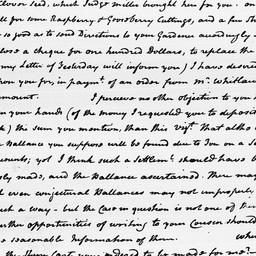 flower seed, which Judge Miller brought here for you. on
ll for some Raspberry & Gooseberry Cuttings, and a few Sh
so good as to send Directions to your Gardener accordingly
was a cheque for one hundred Dollars, to replace the
my Letter of Yesterday will inform you) I have desired
on you for, in paymt. of an order from Mr. Whitlaw
amount. I perceive no other objection to you
in your hands (of the money I requested you to deposit
k) the sum you mention, than this vizt. That altho
e Ballance you suppose will be found due to Jon on a Se
ounts; yet I think such a Settlemt. should have b
ly made, and the Ballance ascertained. There may
l even conjectural Ballances may not improperly
such a way - but the Case in question is not one of them
urther opportunities of writing to your Cousin should
a reasonable Information of them. when
the last you ordered to be made for me?